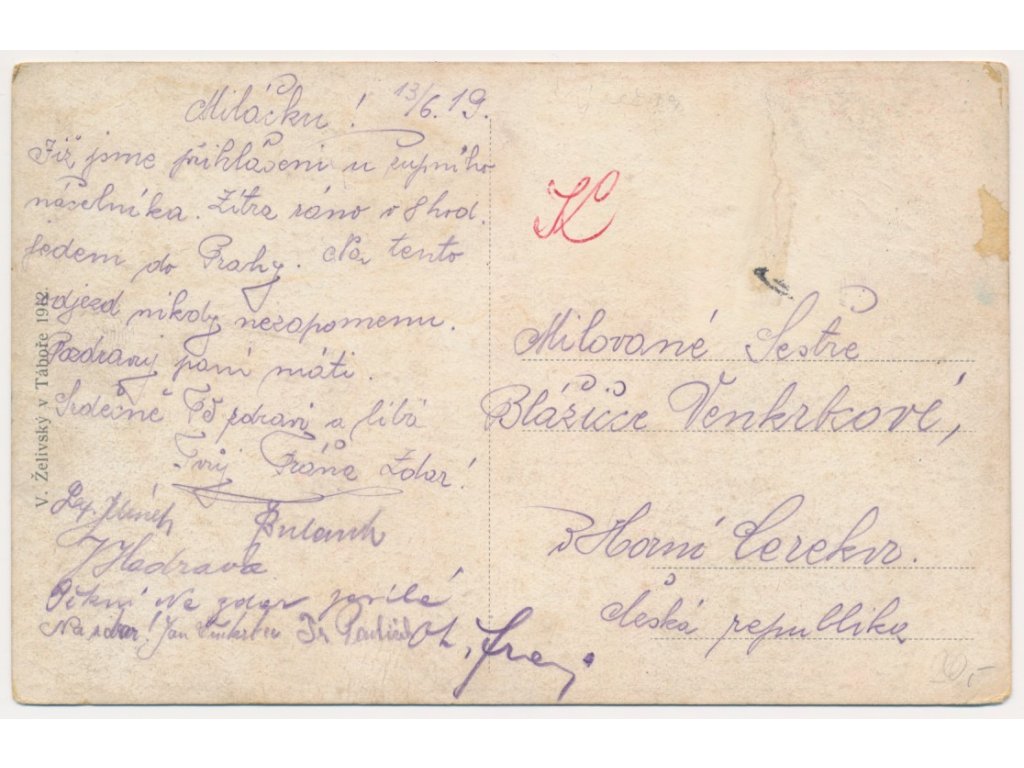 Miláčku! 13/6.19.
Již jsme přihlášeni u župního
náčelníka. Zítra ráno v 8 hod.
jedem do Prahy. Na tento
odjezd nikdy nezapomenu.
Pozdravuj paní máti.
Srdečně Tě zdraví a líbá
Tvůj Fráňa Zdar!
J Hadrava
Na zdar
Na zdar! Jan
V. Želivský v Táboře 1912.
K
Milované Sestře
Blážičce Venkrbkové,
v Horní Cerekvi.
česká republika